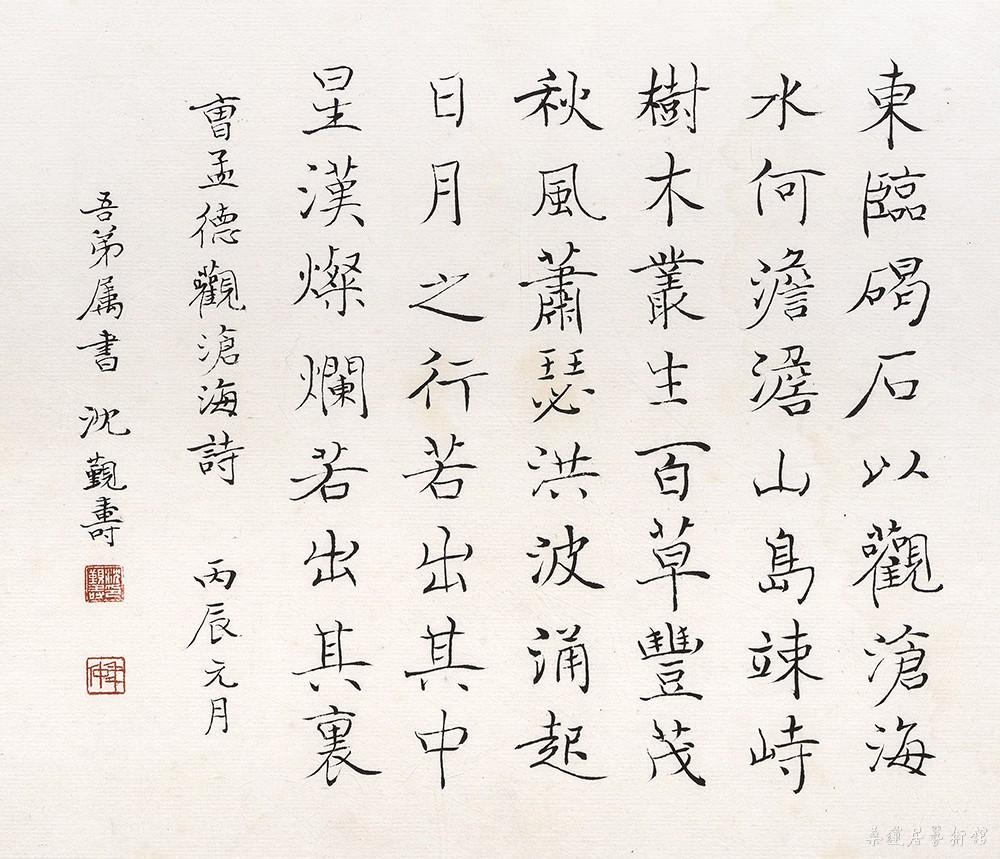 東臨碣石以觀滄海
水何澹澹山島竦峙
樹木叢生百草豐茂
秋風蕭瑟洪波涌起
日月之行若出其中
星漢燦爛若出其裏
曹孟德觀滄海詩 丙辰元月
吾弟属書 沈覲壽
桑蓮居藝術館